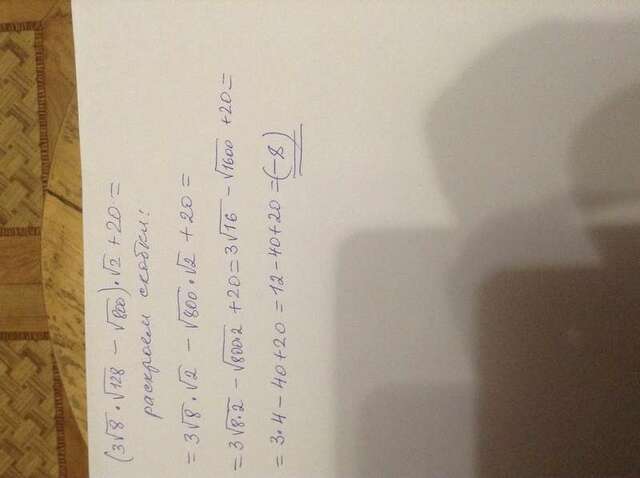 (3√8 · √128 − √800) · √2 + 20 =
раскроем скобки:
= 3√8 · √2 − √800 · √2 + 20 =
= 3√8·2 − √800·2 + 20 = 3√16 − √1600 + 20 =
= 3·4 − 40 + 20 = 12 − 40 + 20 = (−8)